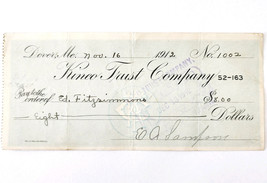 Dover, Me, Nov. 16 1912 No. 1002
Kineo Trust Company 52-163
Pay to the order of Ed. Fitzsimmons $8.00
Eight Dollars
E A Sampson